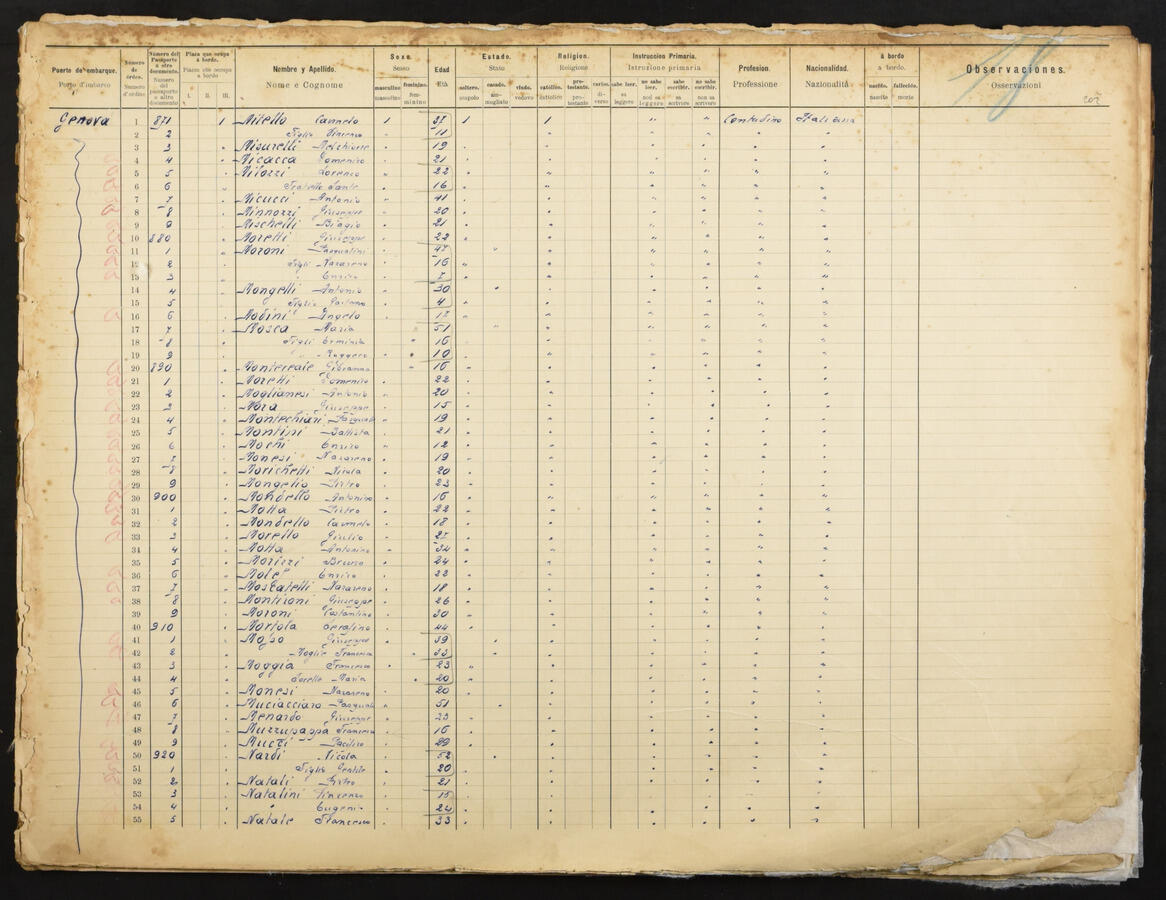 Puerto de embarque. Porto d'imbarco
Número de órden. Numero d'ordine
Número del Pasaporte ú otro documento. Numero del passaporto o altro documento
Plaza que ocupa á bordo. Piazza che occupa a bordo I. II. III.
Nombre y Apellido. Nome e Cognome
Sexo. Sesso masculino mascolino femenino. femminino
Edad Età
Estado. Stato soltero. scapolo casado. ammogliato viudo. vedovo
Religion. Religione católico. cattolico protestante. protestante varios. diverse
Instruccion Primaria. Istruzione primaria sabe leer. sa leggere no sabe leer. non sa leggere sabe escribir. sa scrivere no sabe escribir. non sa scrivere
Profesion. Professione
Nacionalidad. Nazionalità
á bordo a bordo. nacido. nascito fallecido. morto
Observaciones. Osservazioni
18
207
Genova 1 871 1 Mitello Carmelo 1 37 1 1 " " Contadino Italiana
2 2 Figlio Vincenzo 11
3 3 Misurelli Melchiorre 19
4 4 Micacca Domenico 21
5 5 Milozzi Lorenzo 22
6 6 Fratello Sante 16
7 7 Micucci Antonio 41
8 8 Minnozzi Giuseppe 20
9 9 Mischelli Biagio 21
10 880 Moretti Giuseppe 22
11 1 Moroni Pasqualini 47
12 2 Figli Nazareno 16
13 3 " Enrico 7
14 4 Mongelli Antonio 30
15 5 Figlio Gaetano 4
16 6 Modini Angelo 17
17 7 Mosca Maria 51
18 8 Figli Erminia 16
19 9 " Ruggero 10
20 890 Montereale Giovanna 16
21 1 Moretti Domenico 22
22 2 Moglianesi Antonio 20
23 3 Mora Giuseppe 15
24 4 Montechiari Pasquale 19
25 5 Montini Battista 21
26 6 Mochi Enrico 12
27 7 Monesi Nazareno 19
28 8 Morichetti Nicola 20
29 9 Mongelio Pietro 23
30 900 Mondello Antonino 16
31 1 Motta Pietro 22
32 2 Mondello Carmelo 18
33 3 Morello Giulio 27
34 4 Motta Antonino 34
35 5 Morizzi Bruno 24
36 6 Mole' Enrico 22
37 7 Moscatelli Nazareno 18
38 8 Montironi Giuseppe 26
39 9 Moroni Costantino 30
40 910 Mortola Serafino 44
41 1 Moso Giuseppe 39
42 2 Moglie Francesca 33
43 3 Moggia Francesco 23
44 4 Sorella Maria 20
45 5 Monesi Nazareno 20
46 6 Muciacciaro Pasquale 51
47 7 Menardo Giuseppe 23
48 8 Muzzupappa Francesco 16
49 9 Mucci Pacifico 29
50 920 Nardi Nicola 52
51 1 Figlio Gentile 20
52 2 Natali Pietro 21
53 3 Natalini Vincenzo 15
54 4 " Eugenio 24
55 5 Natale Francesco 33